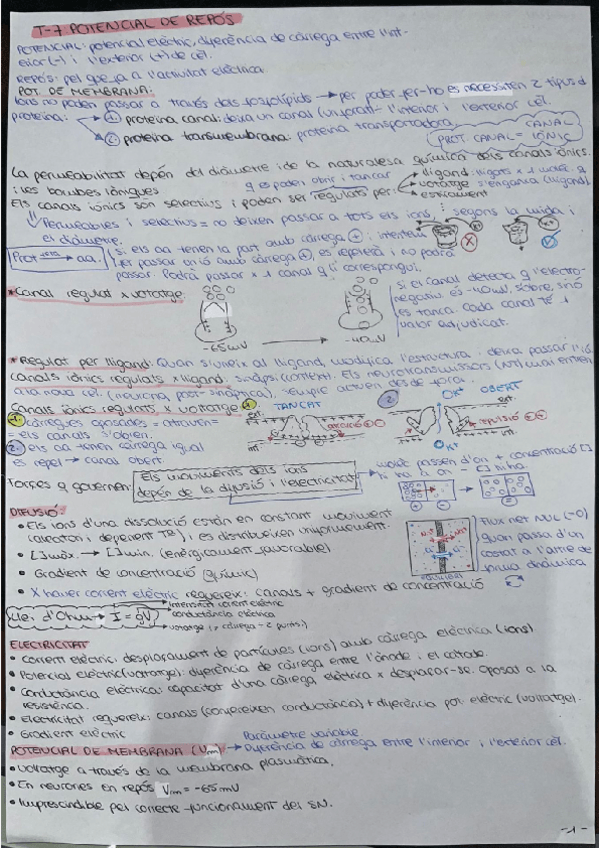 T-7 POTENCIAL DE REPÒS
POTENCIAL: potencial elèctric, diferència de càrrega entre l'int-
erior (-) i l'exterior (+) de cèl.
REPÒS: pel que fa a l'activitat elèctrica.
POT. DE MEMBRANA:
Ions no poden passar a través dels fosfolípids → per poder fer-ho es necessiten 2 tipus d
proteïna: ① proteïna canal: deixa un canal l'interior i l'exterior cèl.
② proteïna transmembrana: proteïna transportadora.
PROT. CANAL = CANAL IÒNIC
La permeabilitat depèn del diàmetre i de la naturalesa química dels canals iònics.
i les bombes iòniques
q es poden obrir i tancar
Els canals iònics són selectius i poden ser regulats per:
lligand: lligats x 1 molèc. q s'enganxa (lligand).
voltatge
estirament
Permeables i selectius = no deixen passar a tots els ions, segons la mida i
el diàmetre.
Prot → aa.
si els aa tenen la part amb càrrega ⊕, i intenten
fer passar un ió amb càrrega ⊕, es repelirà i no podrà
passar. Podrà passar x 1 canal q li correspongui.
*Canal regulat x voltatge:
-65mV → -40mV
si el canal detecta q l'electro-
negativ. és -40mV, s'obre, sinó
es tanca. Cada canal té 1
valor adjudicat.
*Regulat per lligand: Quan s'uneix al lligand, modifica l'estructura i deixa passar l'ió
canals iònics regulats x lligand: sinapsi (context). Els neurotransmissors (NT) mai entren
a la nova cèl. (neurona post-sinàptica). Sempre actuen des de fora.
Canals iònics regulats x voltatge
1 TANCAT
2 OBERT
ext.
int.
① càrregues oposades = atrauen =
= els canals s'obren.
② els aa tenen càrrega igual
es repel → canal obert.
ATRACCIÓ
REPULSIÓ
OK+
OK+
Forces q governen: Els moviments dels ions
depèn de la difusió i l'electricitat
molèc passen d'on + concentració []
hi ha a on - [] hi ha.
DIFUSIÓ
• Els ions d'una dissolució estan en constant moviment
(aleatori i depenent Tª), i es distribueixen uniformement.
• []màx. → []mín. (energèticament favorable)
• Gradient de concentració (químic)
• X haver corrent elèctric requereix: canals + gradient de concentració
Flux net NUL (=0)
quan passa d'un
costat a l'altre de
forma dinàmica
EQUILIBRI
Llei d'Ohm → I = gV
intensitat corrent elèctric
conductància elèctrica
voltatge (≠ càrrega - 2 punts.)
ELECTRICITAT
• Corrent elèctric: desplaçament de partícules (ions) amb càrrega elèctrica (ions)
• Potencial elèctric (voltatge): diferència de càrrega entre l'ànode i el càtode.
• Conductància elèctrica: capacitat d'una càrrega elèctrica x desplaçar-se. Oposat a la
resistència.
• Electricitat requereix: canals (confereixen conductància) + diferència pot. elèctric (voltatge).
• Gradient elèctric
Paràmetre variable.
POTENCIAL DE MEMBRANA (Vm) → Diferència de càrrega entre l'interior i l'exterior cèl.
• Voltatge a través de la membrana plasmàtica.
• En neurones en repòs Vm = -65mV
• Imprescindible pel correcte funcionament del SN.
-1-